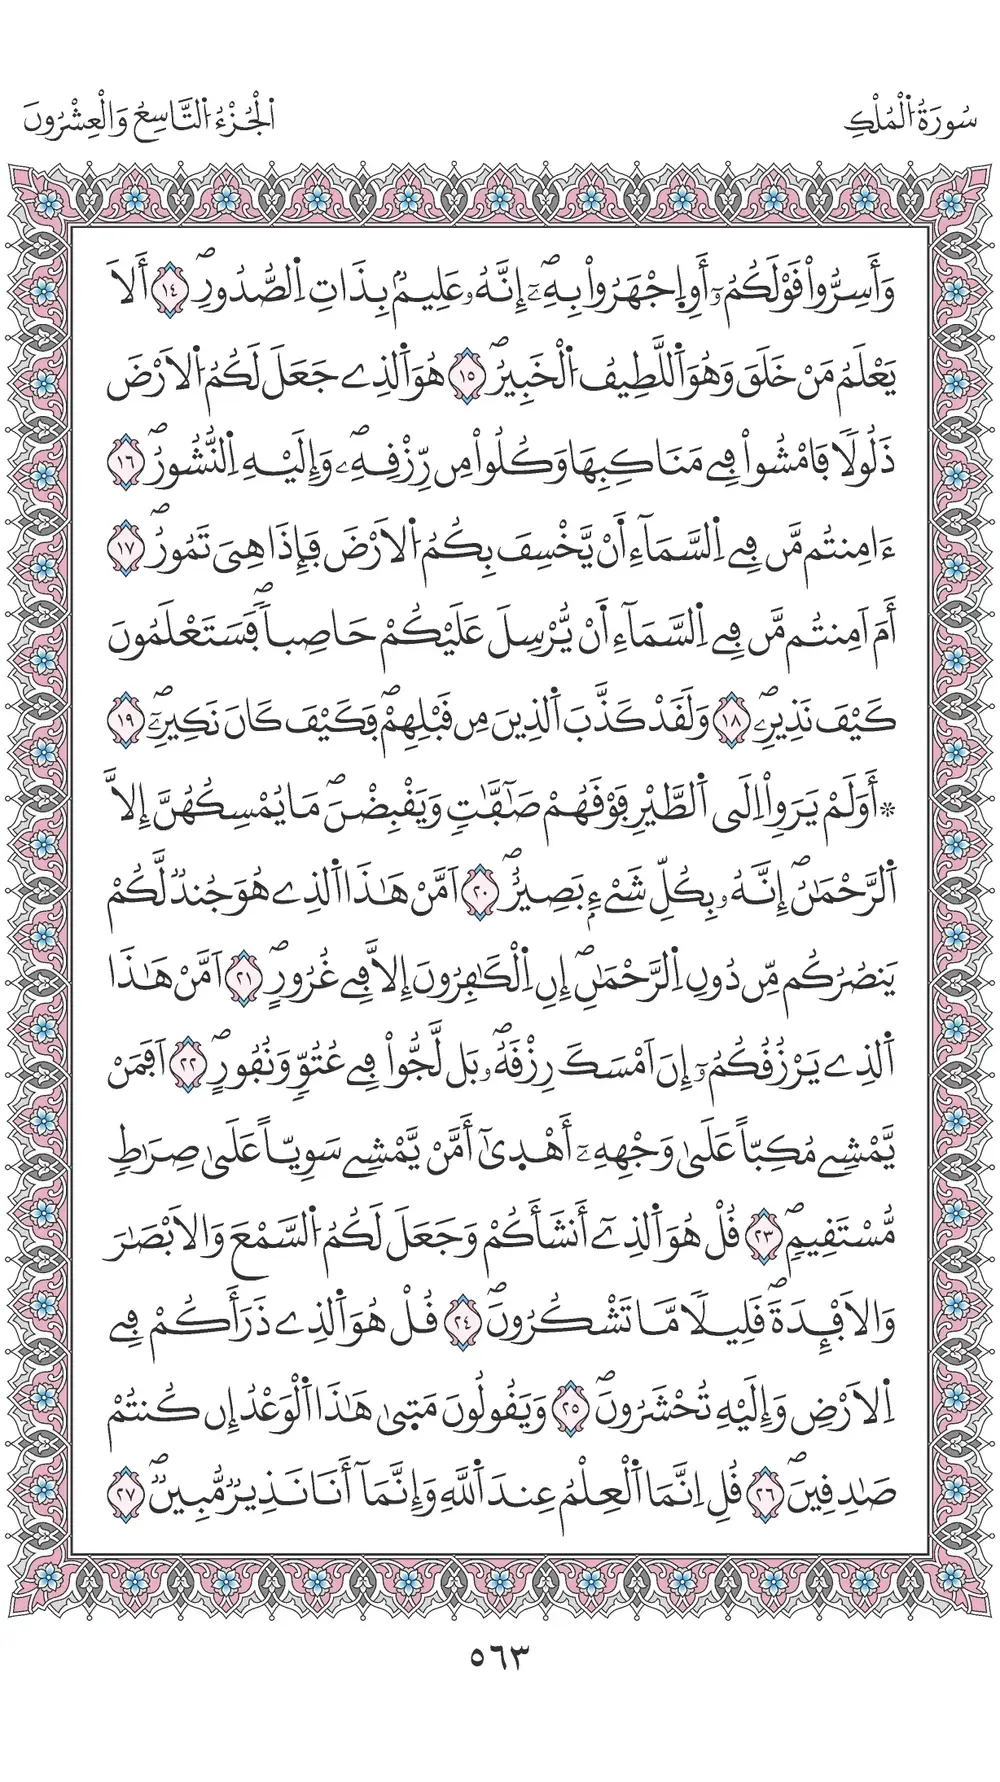 سُورَةُ اُ۬لْمُلْكِ
اَ۬لْجُزْءُ اُ۬لتَّاسِعُ وَالْعِشْرُونَ
وَأَسِرُّواْ قَوْلَكُمُۥٓ أَوِ اِ۪جْهَرُواْ بِهِۦٓۖ إِنَّهُۥ عَلِيمُۢ بِذَاتِ اِ۬لصُّدُورِۖ ١٤ أَلَا
يَعْلَمُ مَنْ خَلَقَ وَهُوَ اَ۬للَّطِيفُ اُ۬لْخَبِيرُۖ ١٥ هُوَ اَ۬لذِے جَعَلَ لَكُمُ اُ۬لَارْضَ
ذَلُولاٗ فَامْشُواْ فِے مَنَاكِبِهَا وَكُلُواْ مِن رِّزْقِهِۦۖ وَإِلَيْهِ اِ۬لنُّشُورُۖ ١٦
ءَآمِنتُم مَّن فِے اِ۬لسَّمَآءِ اَ۬نْ يَّخْسِفَ بِكُمُ اُ۬لَارْضَ فَإِذَا هِيَ تَمُورُۖ ١٧
أَمَ اَمِنتُم مَّن فِے اِ۬لسَّمَآءِ اَ۬نْ يُّرْسِلَ عَلَيْكُمْ حَاصِباٗۖ فَسَتَعْلَمُونَ
كَيْفَ نَذِيرِۦۖ ١٨ وَلَقَدْ كَذَّبَ اَ۬لذِينَ مِن قَبْلِهِمْۖ فَكَيْفَ كَانَ نَكِيرِۦٓۖ ١٩
۞ أَوَلَمْ يَرَوِاْ اِلَي اَ۬لطَّيْرِ فَوْقَهُمْ صَٰٓفَّٰتٖ وَيَقْبِضْنَۖ مَا يُمْسِكُهُنَّ إِلَّا
اَ۬لرَّحْمَٰنُۖ إِنَّهُۥ بِكُلِّ شَےْءِۢ بَصِيرٌۖ ٢٠ اَمَّنْ هَٰذَا اَ۬لذِے هُوَ جُندٞ لَّكُمْ
يَنصُرُكُم مِّن دُونِ اِ۬لرَّحْمَٰنِۖ إِنِ اِ۬لْكَٰفِرُونَ إِلَّا فِے غُرُورٍۖ ٢١ اَمَّنْ هَٰذَا
اَ۬لذِے يَرْزُقُكُمُۥٓ إِنَ اَمْسَكَ رِزْقَهُۥۖ بَل لَّجُّواْ فِے عُتُوّٖ وَنُفُورٍۖ ٢٢ اَفَمَنْ
يَّمْشِے مُكِبّاً عَلَيٰ وَجْهِهِۦٓ أَهْدِيٰٓ أَمَّنْ يَّمْشِے سَوِيّاً عَلَيٰ صِرَٰطٖ
مُّسْتَقِيمٖۖ ٢٣ قُلْ هُوَ اَ۬لذِےٓ أَنشَأَكُمْ وَجَعَلَ لَكُمُ اُ۬لسَّمْعَ وَالَابْصَٰرَ
وَالَافْـِٕدَةَۖ قَلِيلاٗ مَّا تَشْكُرُونَۖ ٢٤ قُلْ هُوَ اَ۬لذِے ذَرَأَكُمْ فِے
اِ۬لَارْضِ وَإِلَيْهِ تُحْشَرُونَۖ ٢٥ وَيَقُولُونَ مَتَيٰ هَٰذَا اَ۬لْوَعْدُ إِن كُنتُمْ
صَٰدِقِينَۖ ٢٦ قُلِ اِنَّمَا اَ۬لْعِلْمُ عِندَ اَ۬للَّهِ وَإِنَّمَآ أَنَا نَذِيرٞ مُّبِينٞۖ ٢٧
٥٦٣